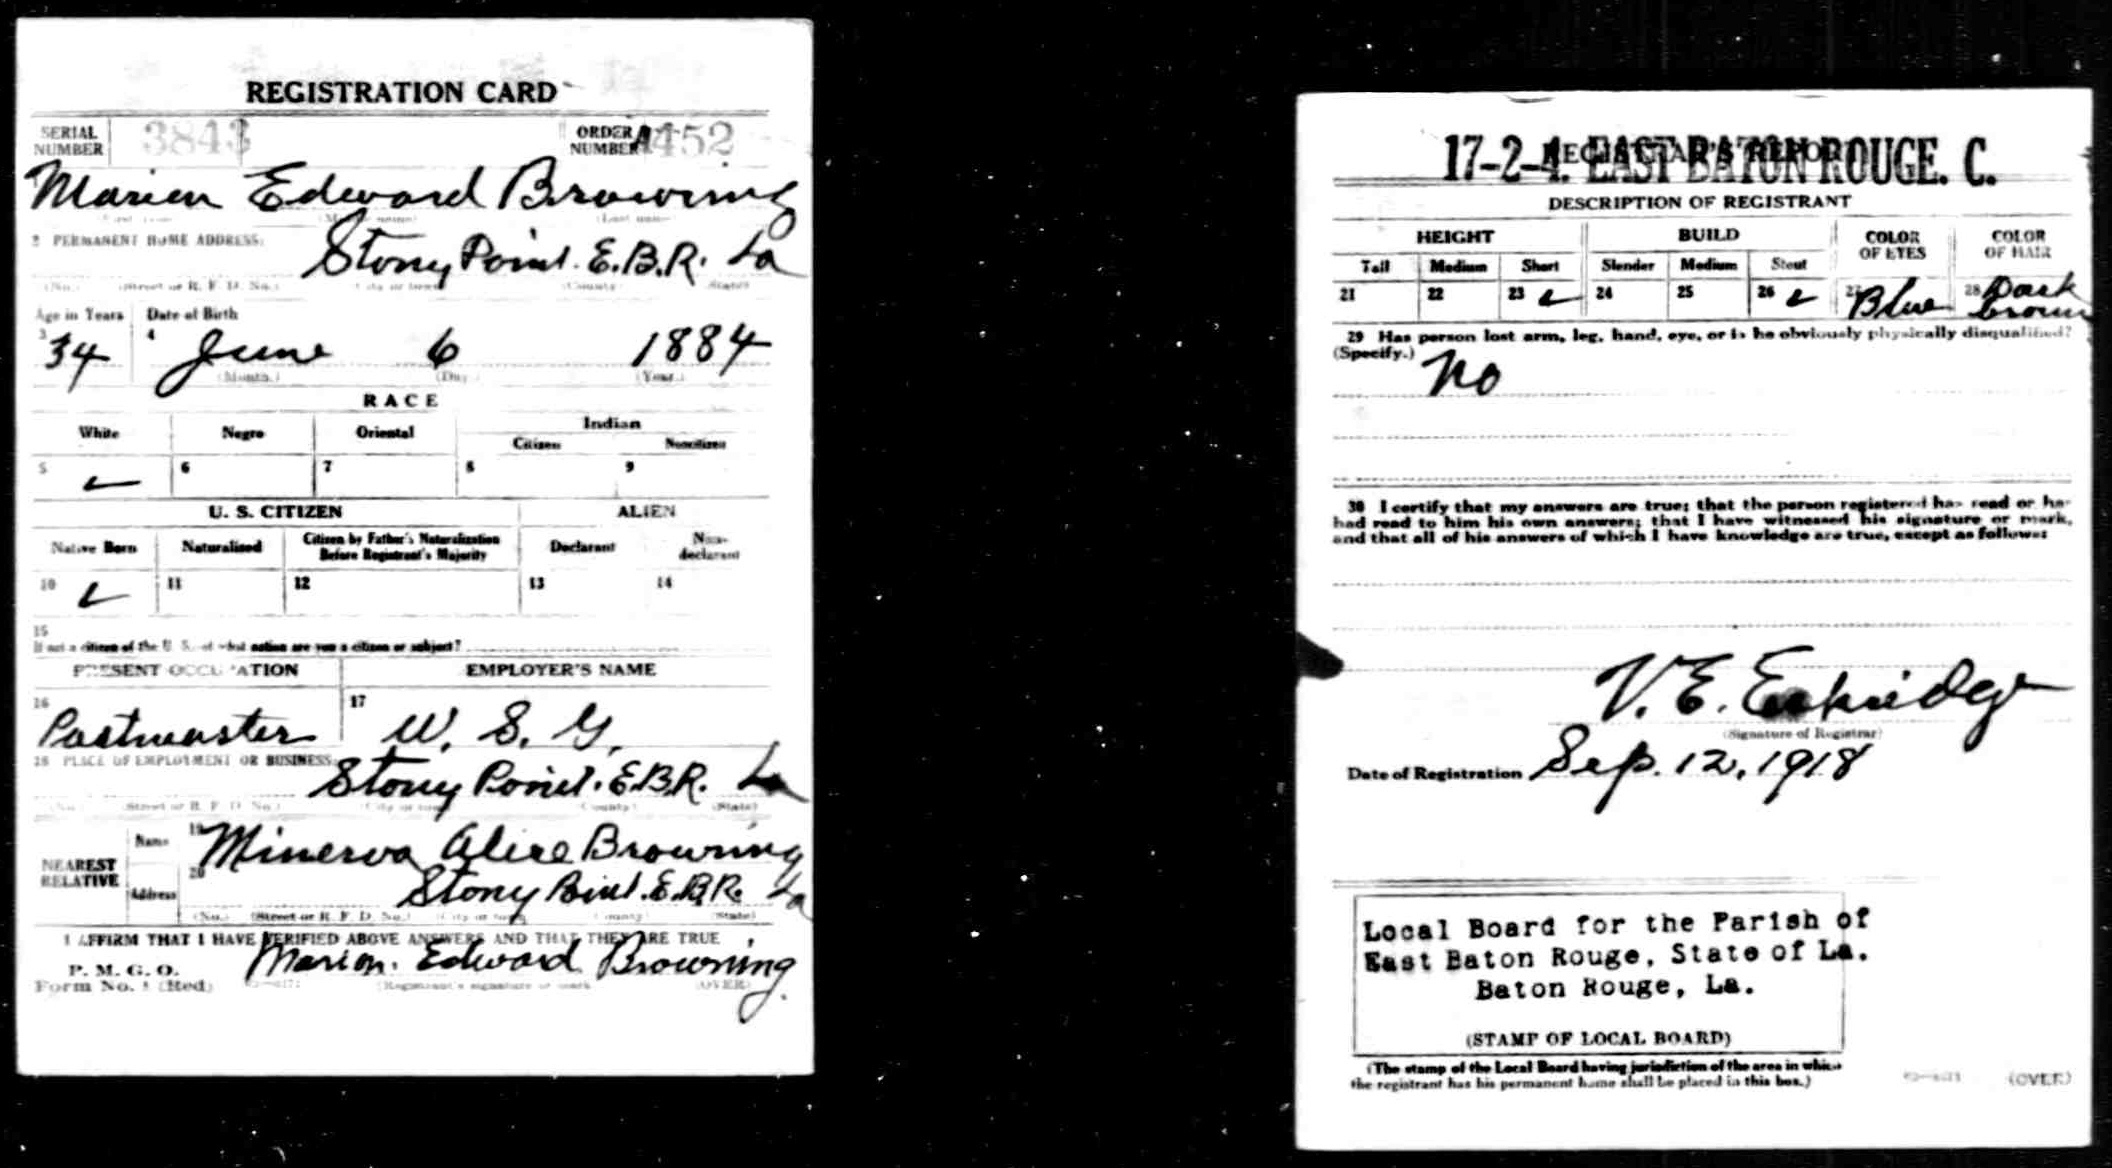 REGISTRATION CARD
SERIAL NUMBER 3843 ORDER NUMBER A452
Marion Edward Browning
(First name) (Middle name) (Last name)
2 PERMANENT HOME ADDRESS:
Stony Point. E.B.R. La
(No.) (Street or R. F. D. No.) (City or town) (County) (State)
Age in Years Date of Birth
3 34 4 June 6 1884
(Month.) (Day.) (Year.)
RACE
White Negro Oriental Indian
Citizen Noncitizen
5 6 7 8 9
U. S. CITIZEN ALIEN
Native Born Naturalized Citizen by Father's Naturalization Before Registrant's Majority Declarant Non-declarant
10 11 12 13 14
15
If not a citizen of the U. S., of what nation are you a citizen or subject?
PRESENT OCCUPATION EMPLOYER'S NAME
16 Postmaster 17 U. S. G.
18 PLACE OF EMPLOYMENT OR BUSINESS:
Stony Point. E.B.R. La
(No.) (Street or R. F. D. No.) (City or town) (County) (State)
NEAREST RELATIVE
Name 19 Minerva Alice Browning
Address 20 Stony Point. E.B.R. La
(No.) (Street or R. F. D. No.) (City or town) (County) (State)
I AFFIRM THAT I HAVE VERIFIED ABOVE ANSWERS AND THAT THEY ARE TRUE
P. M. G. O.
Form No. 1 (Red) Marion. Edward Browning
(Registrant's signature or mark) (OVER)
REGISTRAR'S REPORT
17-2-4. EAST BATON ROUGE. C.
DESCRIPTION OF REGISTRANT
HEIGHT BUILD COLOR OF EYES COLOR OF HAIR
Tall Medium Short Slender Medium Stout
21 22 23 24 25 26 27 Blue 28 Dark brown
29 Has person lost arm, leg, hand, eye, or is he obviously physically disqualified?
(Specify.) No
30 I certify that my answers are true; that the person registered has read or has
had read to him his own answers; that I have witnessed his signature or mark,
and that all of his answers of which I have knowledge are true, except as follows:
V. E. Eskridge
(Signature of Registrar)
Date of Registration Sep. 12, 1918
Local Board for the Parish of
East Baton Rouge, State of La.
Baton Rouge, La.
(STAMP OF LOCAL BOARD)
(The stamp of the Local Board having jurisdiction of the area in which
the registrant has his permanent home shall be placed in this box.)
(OVER)